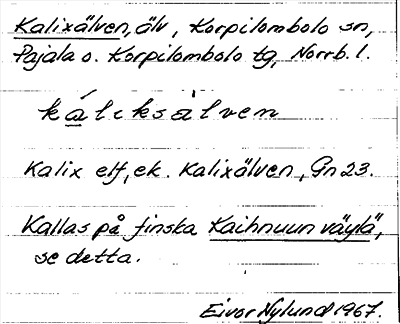 Kalixälven, älv, Korpilombolo sn,
Pajala o. Korpilombolo tg, Norrb. l.
kálɩksàlven
Kalix elf, ek. Kalixälven, Gn 23.
Kallas på finska Kaihnuun väylä,
se detta.
Eivor Nylund 1967.